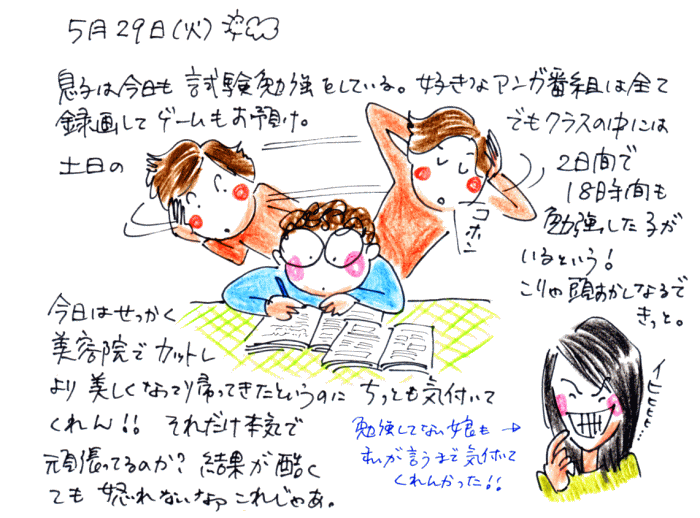 5月29日(火)
息子は今日も試験勉強をしている。好きなアンガ番組は全て
録画してゲームもお預け。
土日の
でもクラスの中には
2日間で
18時間も
勉強した子が
いるという!
こりゃ頭おかしなるで
きっと。
コホン
今日はせっかく
美容院でカットし
より美しくなって帰ってきたというのにちっとも気付いて
くれん!! それだけ本気で
頑張ってるのか? 結果が酷く
ても怒れないなァこれじゃあ。
勉強してない娘も→
私が言うまで気付いて
くれんかった!!
イヒヒヒヒ…